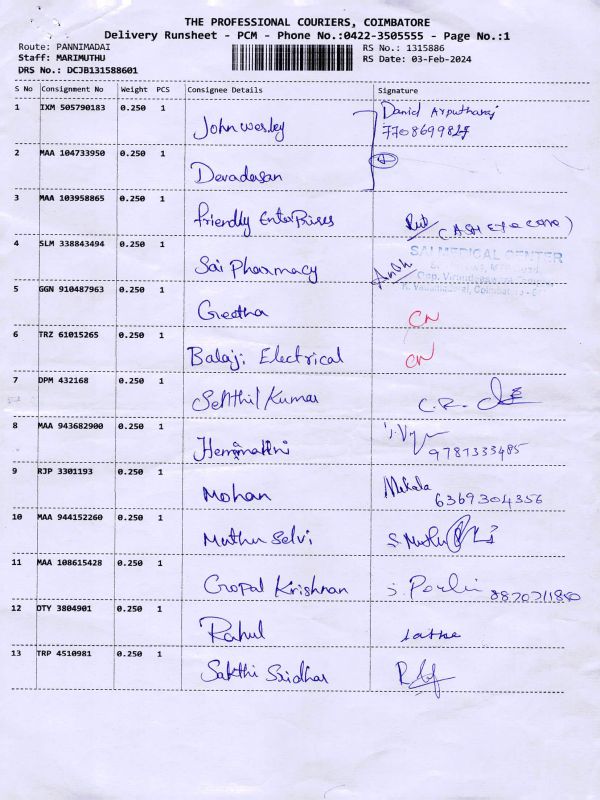 THE PROFESSIONAL COURIERS, COIMBATORE
Delivery Runsheet - PCM - Phone No.:0422-3505555 - Page No.:1
Route: PANNIMADAI
RS No.: 1315886
Staff: MARIMUTHU
RS Date: 03-Feb-2024
DRS No.: DCJB131588601
S No Consignment No Weight PCS Consignee Details Signature
1 IXM 505790183 0.250 1 John wesley Daniel Arputharaj
2 MAA 104733950 0.250 1 Devadasan
3 MAA 103958865 0.250 1 friendly EnterPrises
4 SLM 338843494 0.250 1 Sai Pharmacy
SAI MEDICAL CENTER
5 GGN 910487963 0.250 1 Geetha CN
6 TRZ 61015265 0.250 1 Balaji Electrical CN
7 DPM 432168 0.250 1 Senthil Kumar C.R.
8 MAA 943682900 0.250 1 9787333485
9 RJP 3301193 0.250 1 Mohan Mekala
6369304356
10 MAA 944152260 0.250 1 Muthu Selvi
11 MAA 108615428 0.250 1 Gopal Krishnan
12 OTY 3804901 0.250 1 Rahul
13 TRP 4510981 0.250 1 Sakthi Sridhar